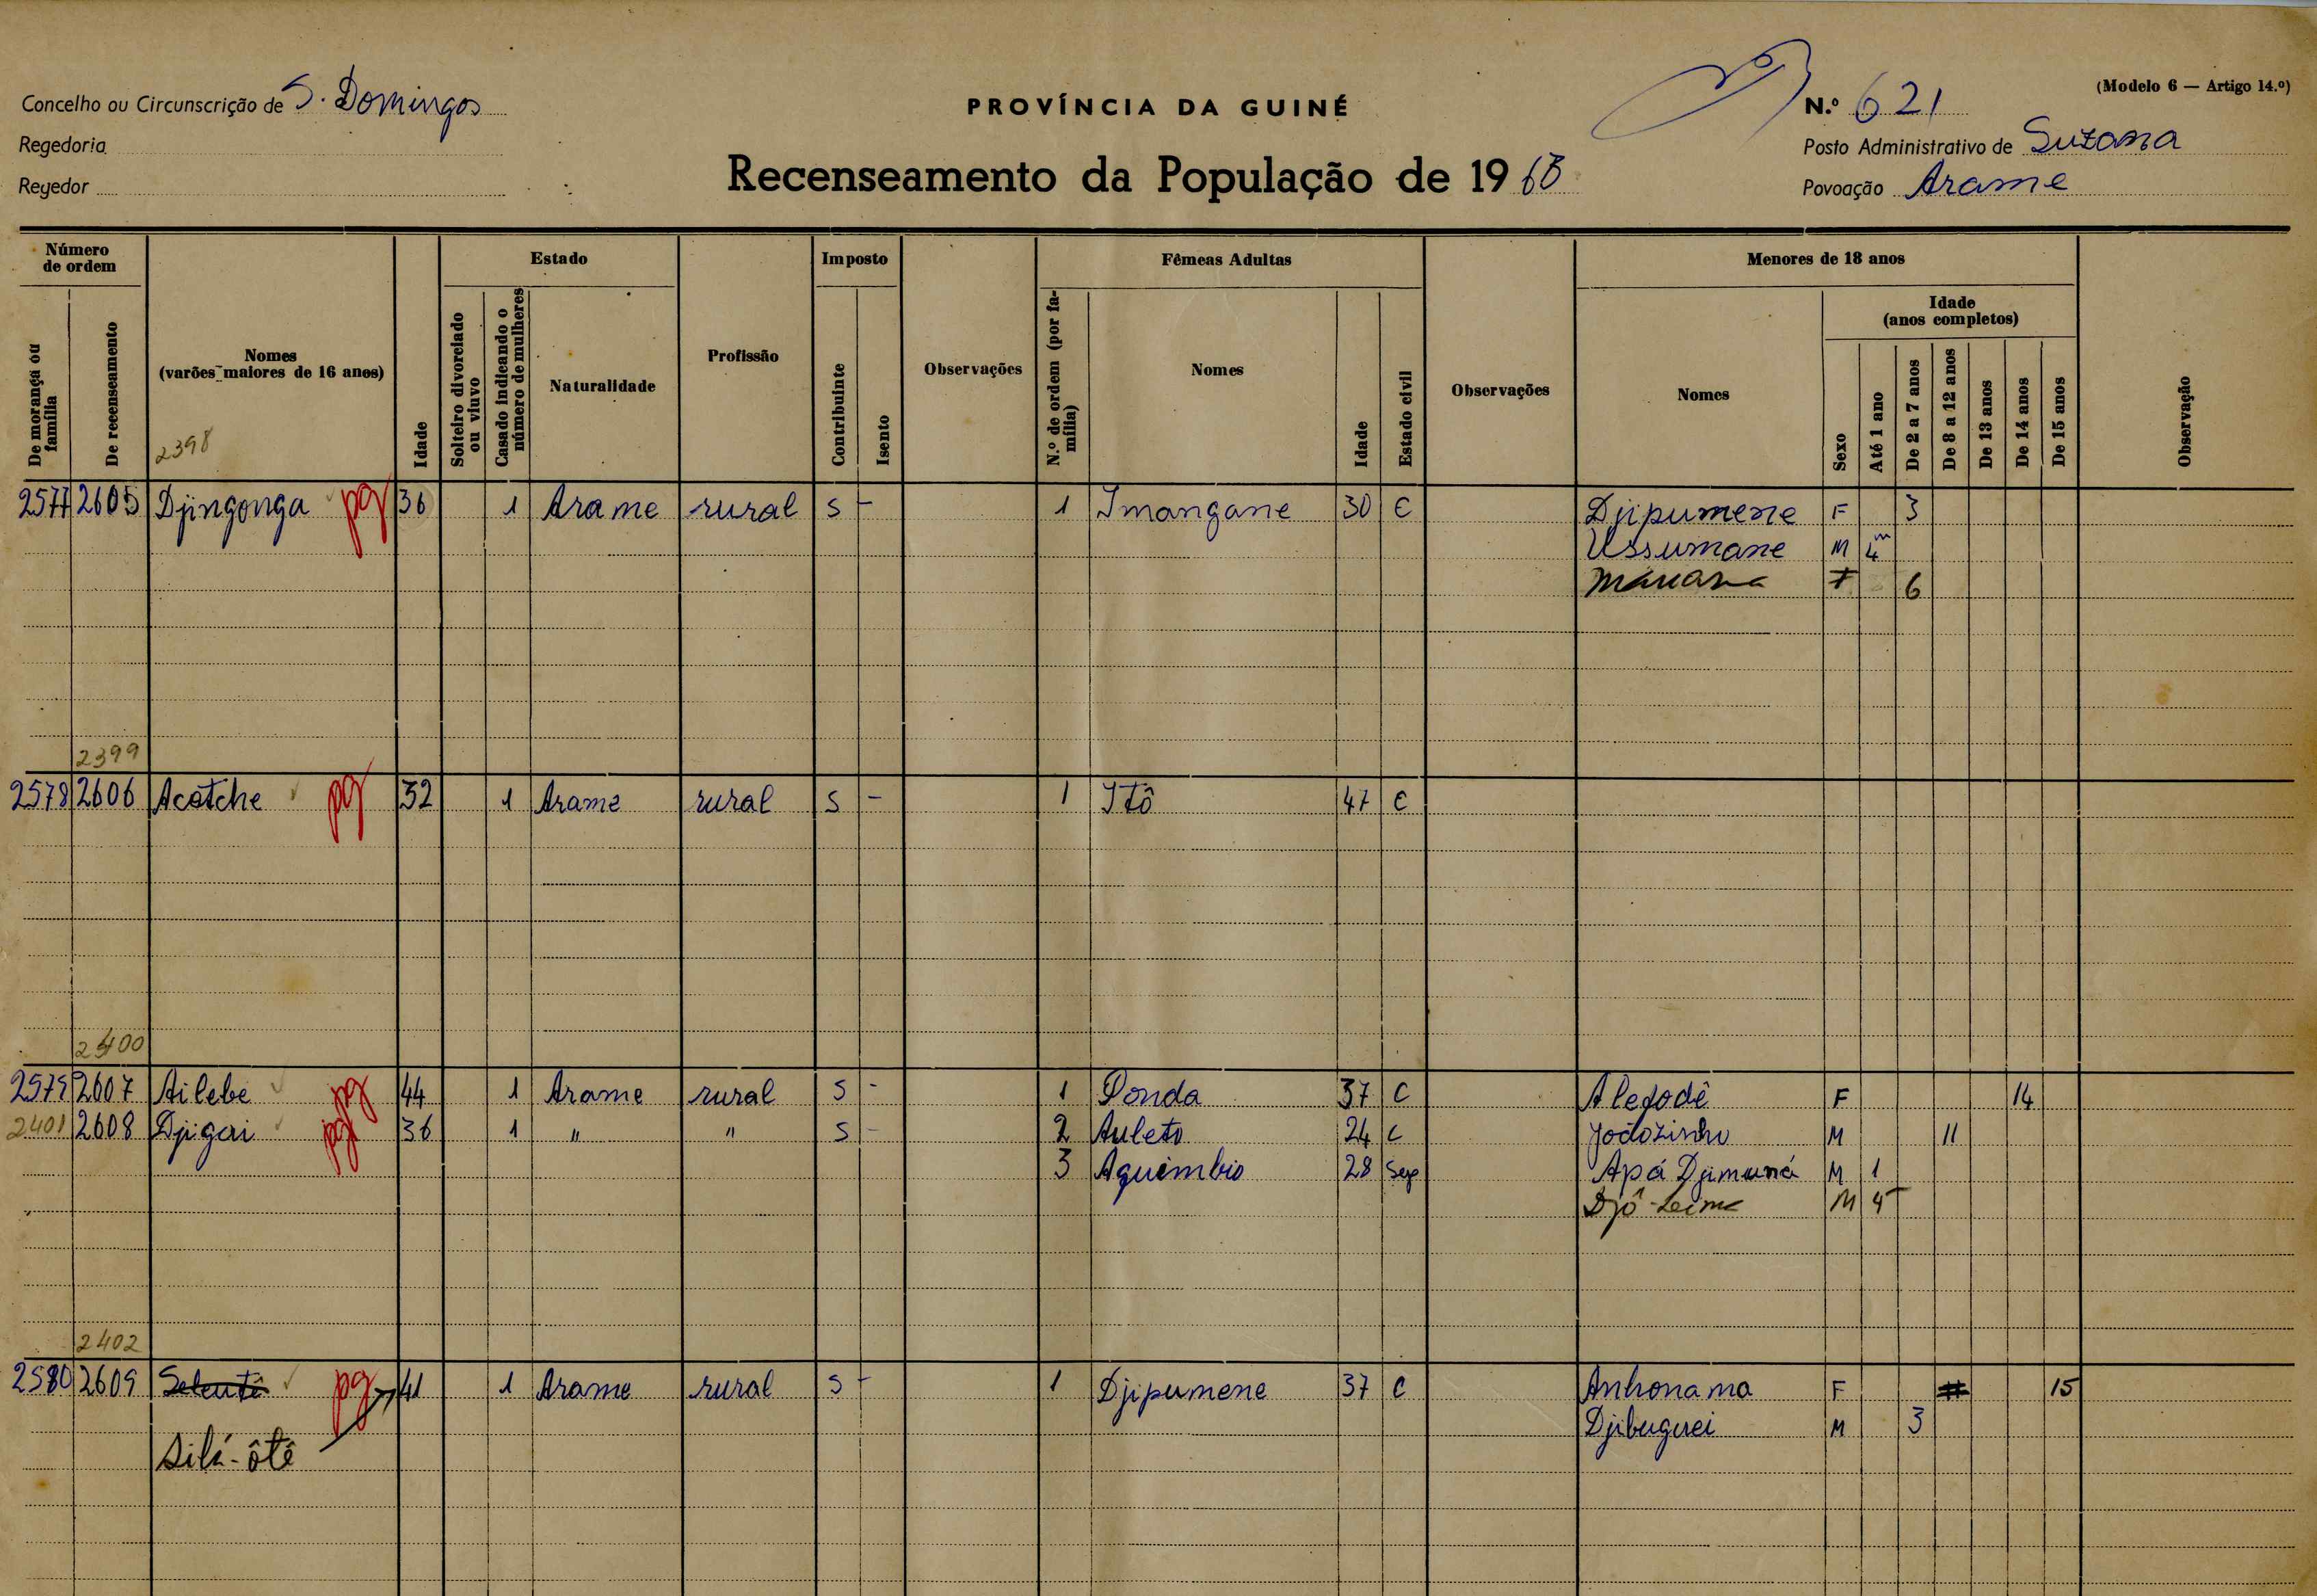 (Modelo 6 — Artigo 14.º)
Concelho ou Circunscrição de S. Domingos
PROVÍNCIA DA GUINÉ
N.º 621
Regedoria
Posto Administrativo de Suzana
Regedor
Recenseamento da População de 1968
Povoação Arame
Número de ordem
Estado
Imposto
Fêmeas Adultas
Menores de 18 anos
Idade (anos completos)
De morança ou família
De recenseamento
Nomes (varões maiores de 16 anos)
Idade
Solteiro divorciado ou viuvo
Casado indicando o número de mulheres
Naturalidade
Profissão
Contribuinte
Isento
Observações
N.º de ordem (por família)
Nomes
Idade
Estado civil
Observações
Nomes
Sexo
Até 1 ano
De 2 a 7 anos
De 8 a 12 anos
De 13 anos
De 14 anos
De 15 anos
Observação
2398
2577 2605 Djingonga pg 36 1 Arame rural S - 1 Imangane 30 C Djipumene F 3
Ussumane M 4m
F 6
2399
2578 2606 Acotche pg 32 1 Arame rural S - 1 Itô 47 C
2400
2579 2607 Ailebe pg 44 1 Arame rural S - 1 Ponda 37 C Alegodê F 14
2401 2608 Djigai pg 36 1 " " S - 2 Auleto 24 C Jodozinho M 11
3 Aquimbio 28 Sep Apá Djimuná M 1
Djô-Leime M 4
2402
2580 2609 Selentê pg 41 1 Arame rural S - 1 Djipumene 37 C Anhonama F 15
Djibuguei M 3
Silá-ôtê